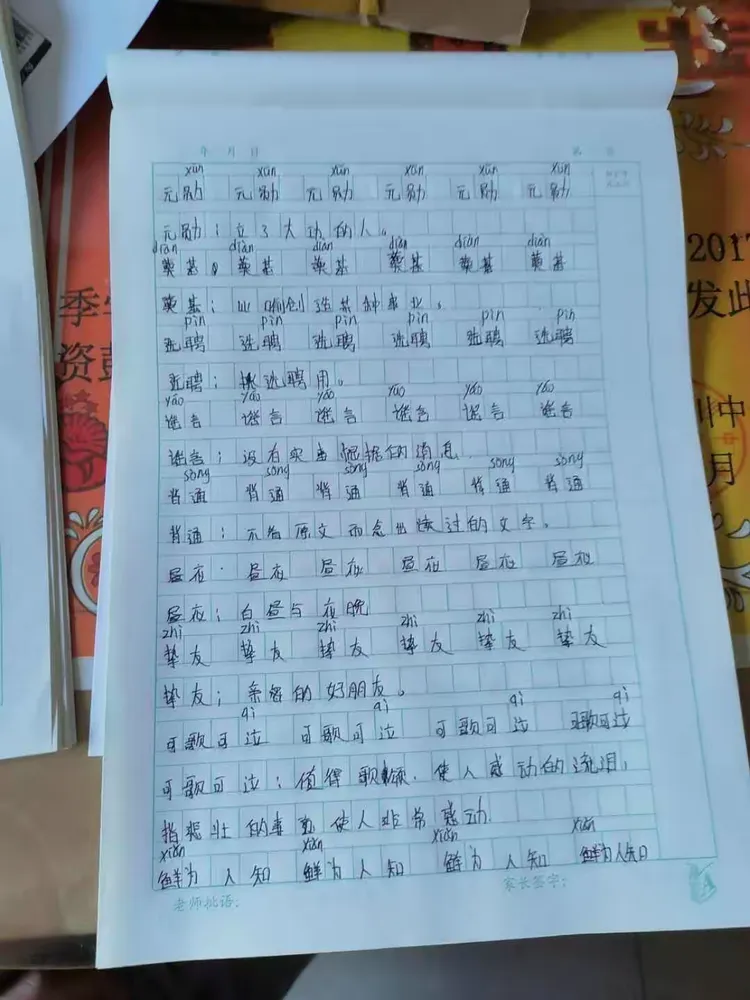 年 月 日
xūn xūn xūn xūn xūn xūn
元勋 元勋 元勋 元勋 元勋 元勋
元勋：立了大功的人。
diàn diàn diàn diàn diàn diàn
奠基 奠基 奠基 奠基 奠基 奠基
奠基：创造某种事业。
pìn pìn pìn pìn pìn pìn
选聘 选聘 选聘 选聘 选聘 选聘
选聘：挑选聘用。
yáo yáo yáo yáo yáo yáo
谣言 谣言 谣言 谣言 谣言 谣言
谣言：没有实事根据的消息
sòng sòng sòng sòng sòng sòng
背诵 背诵 背诵 背诵 背诵 背诵
背诵：不看原文而念出读过的文字。
昼夜 昼夜 昼夜 昼夜 昼夜 昼夜
昼夜：白昼与夜晚
zhì zhì zhì zhì zhì zhì
挚友 挚友 挚友 挚友 挚友 挚友
挚友：亲密的好朋友。
qì qì qì qì
可歌可泣 可歌可泣 可歌可泣 可歌可泣
可歌可泣：值得歌颂，使人感动的流泪，
指悲壮的事迹使人非常感动
xiǎn xiǎn xiǎn xiǎn
鲜为人知 鲜为人知 鲜为人知 鲜为人知
老师批语： 家长签字：
季
资
2017
发此
川中
月